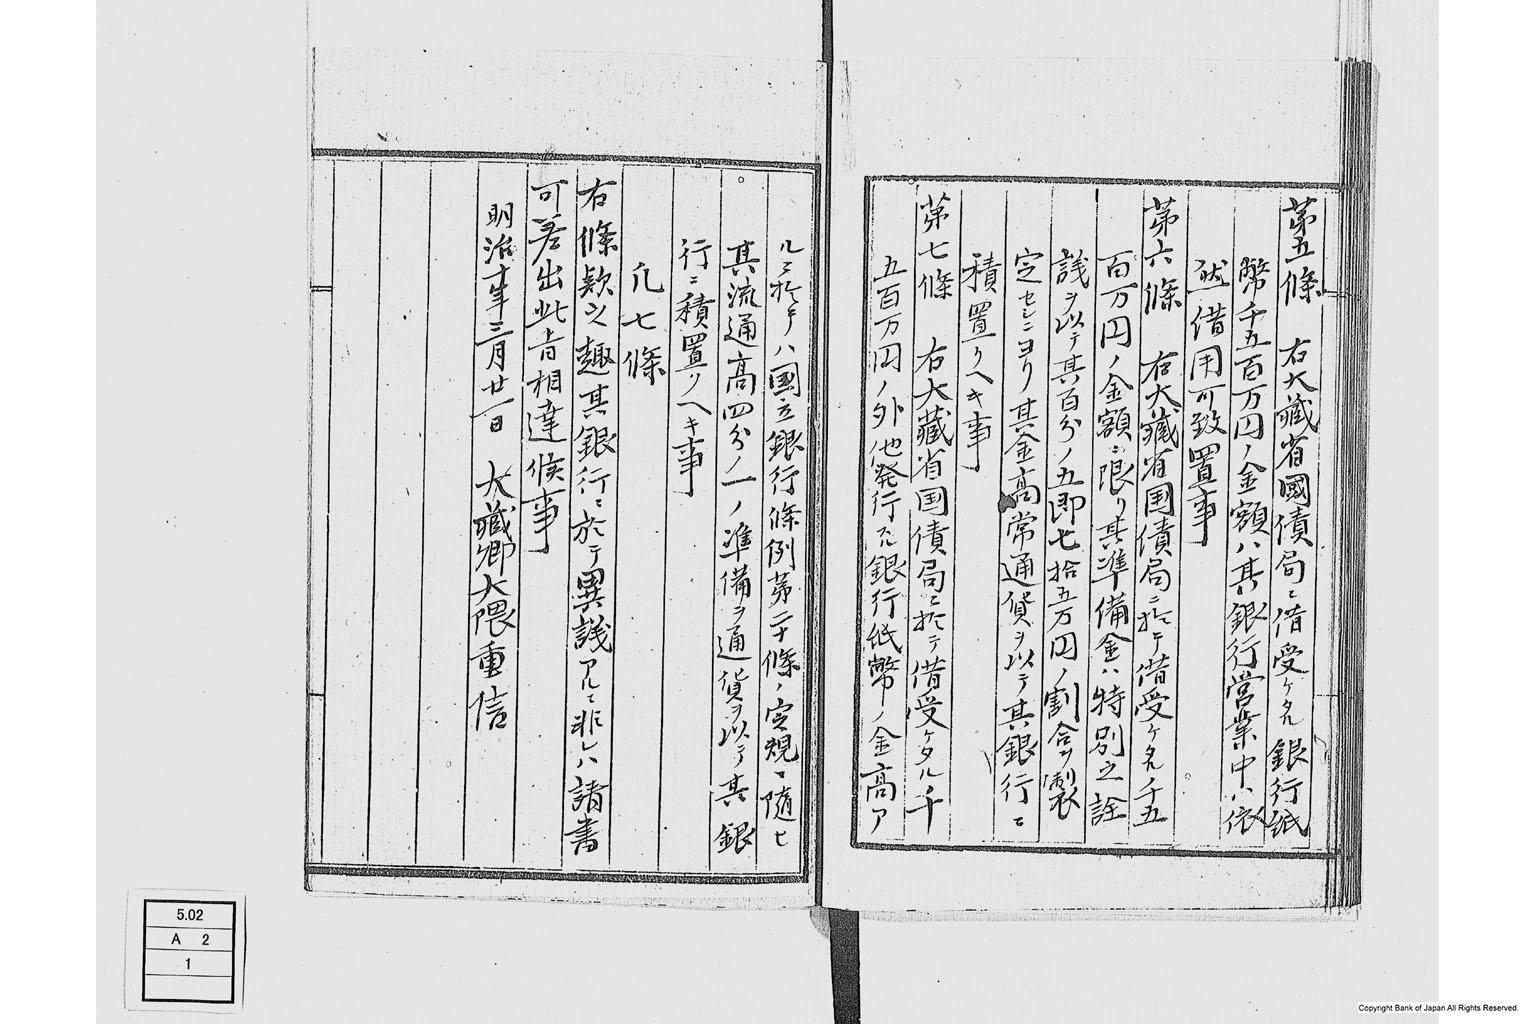 第五條　右大藏省國債局ニ借受ケタル銀行紙
幣千五百万円ノ金額ハ其銀行営業中ハ依
然借用可致置事
第六條　右大藏省国債局ニ於テ借受ケタル千五
百万円ノ金額ニ限リ其準備金ハ特別之詮
議ヲ以テ其百分ノ五即七拾五万円ノ割合ヲ製
定セシニヨリ其金高常通貨ヲ以テ其銀行ニ
積置クヘキ事
第七條　右大藏省国債局ニ於テ借受ケタル千
五百万円ノ外他発行スル銀行紙幣ノ金高ア
ルニ於テハ國立銀行條例第二十條ノ定規ニ随ヒ
其流通高四分ノ一ノ準備ヲ通貨ヲ以テ其銀
行ニ積置クヘキ事
凡七條
右條款之趣其銀行ニ於テ異議アルニ非レハ請書
可差出此旨相達候事
明治十年三月廿一日　大藏卿大隈重信
5.02
A 2
1
Copyright Bank of Japan All Rights Reserved.